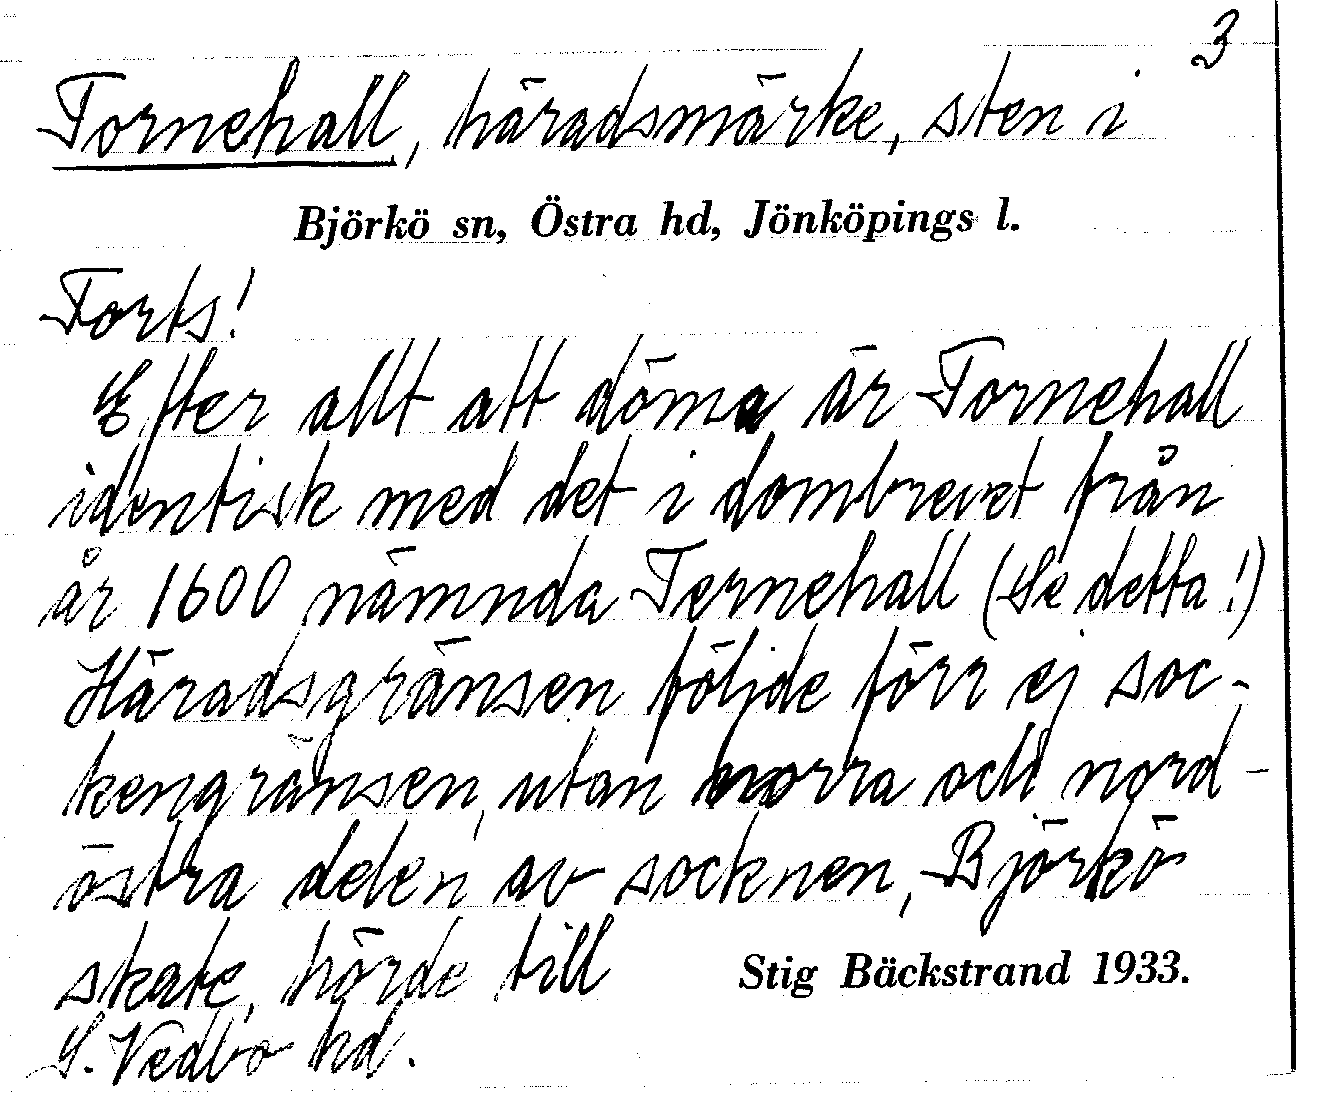 3
Tornehall, häradsmärke, sten i
Björkö sn, Östra hd, Jönköpings l.
Forts!
Efter allt att döma är Tornehall
identisk med det i dombrevet från
år 1600 nämnda Ternehall (Se detta!)
Häradsgränsen följde förr ej soc-
kengränsen, utan norra och nord-
östra delen av socknen, Björkö
skate, hörde till
Stig Bäckstrand 1933.
S. Vedbo hd.